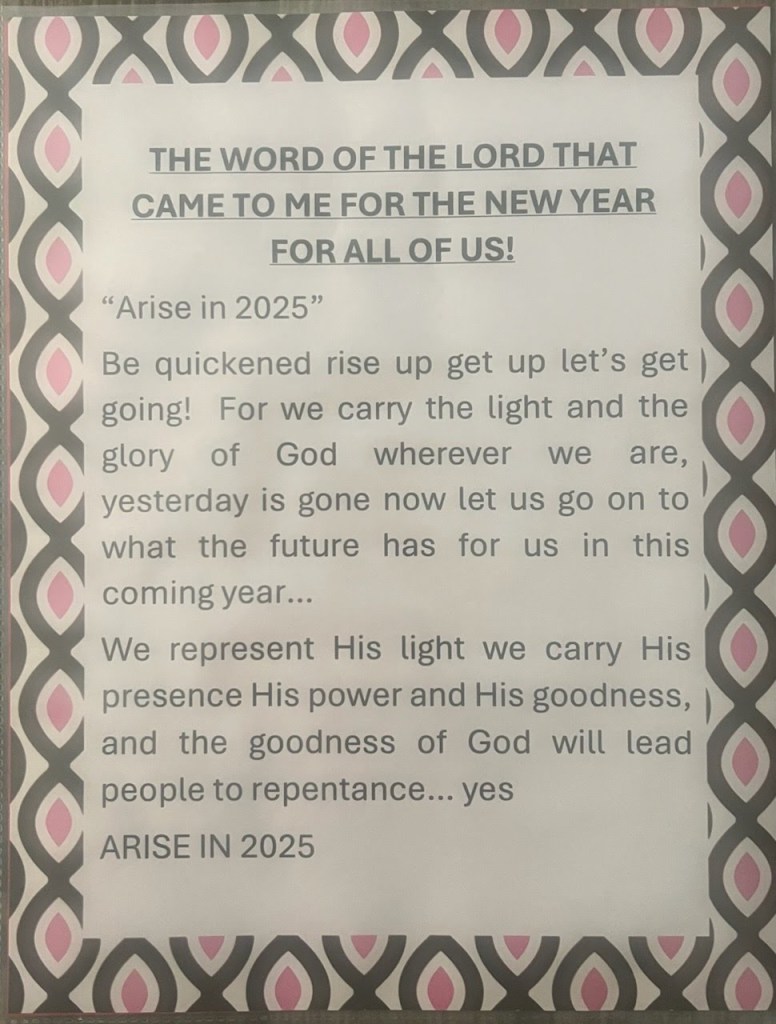 THE WORD OF THE LORD THAT
CAME TO ME FOR THE NEW YEAR
FOR ALL OF US!
“Arise in 2025”
Be quickened rise up get up let’s get
going! For we carry the light and the
glory of God wherever we are,
yesterday is gone now let us go on to
what the future has for us in this
coming year...
We represent His light we carry His
presence His power and His goodness,
and the goodness of God will lead
people to repentance... yes
ARISE IN 2025